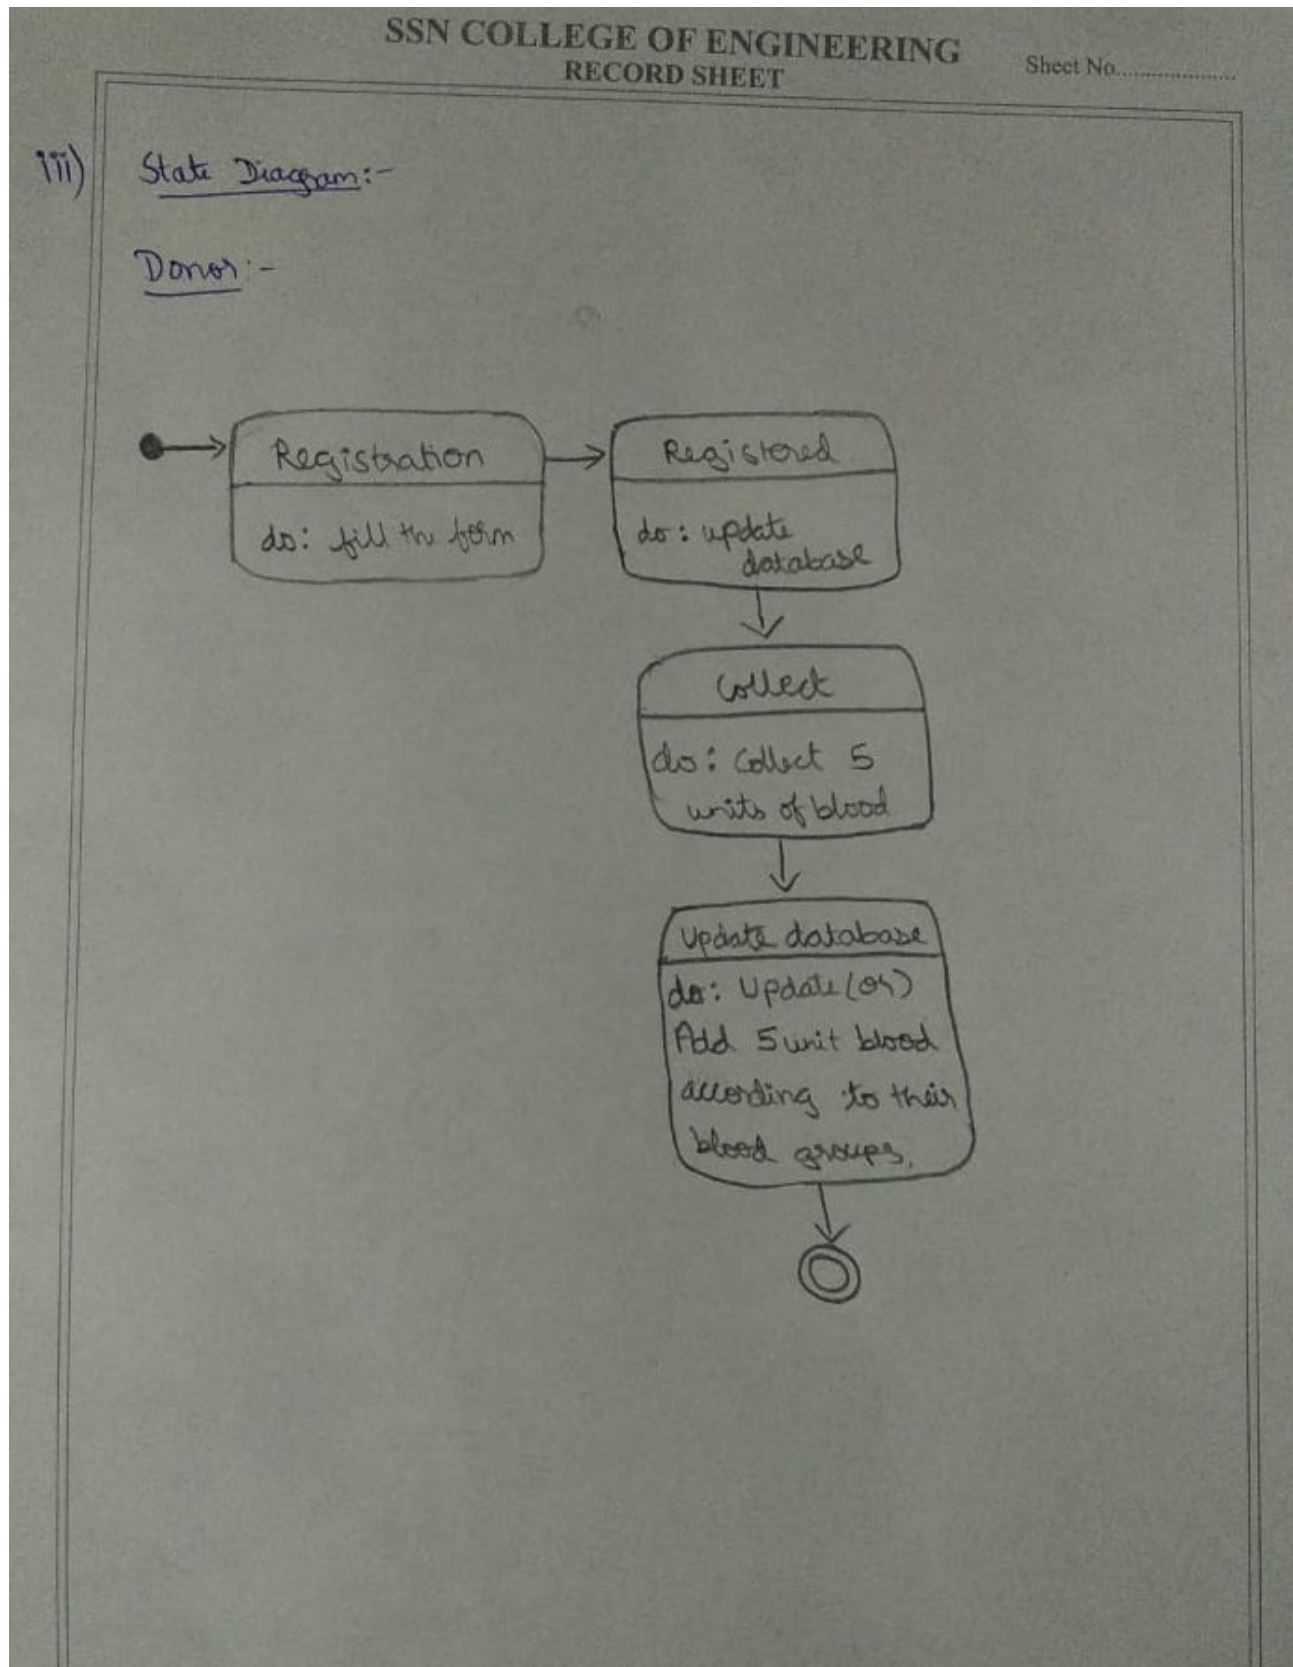 SSN COLLEGE OF ENGINEERING
RECORD SHEET
Sheet No....................
iii) State Diagram:-
Donor:-
Registration
do: fill the form
Registered
do: update
database
Collect
do: Collect 5
units of blood
Update database
do: Update (or)
Add 5 unit blood
according to their
blood groups.